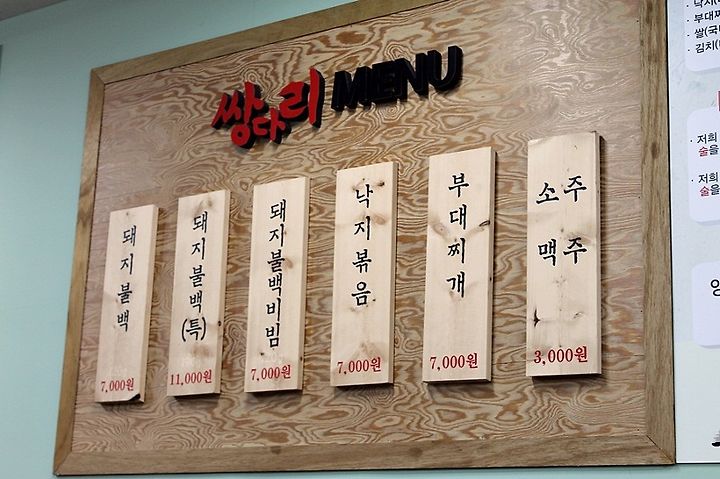 쌍다리 MENU
돼지불백
7,000원
돼지불백(특)
11,000원
돼지불백비빔
7,000원
낙지볶음
7,000원
부대찌개
7,000원
소주
맥주
3,000원
· 부대찌
· 쌀(국
· 김치(
· 저희
술을
· 저희
술을